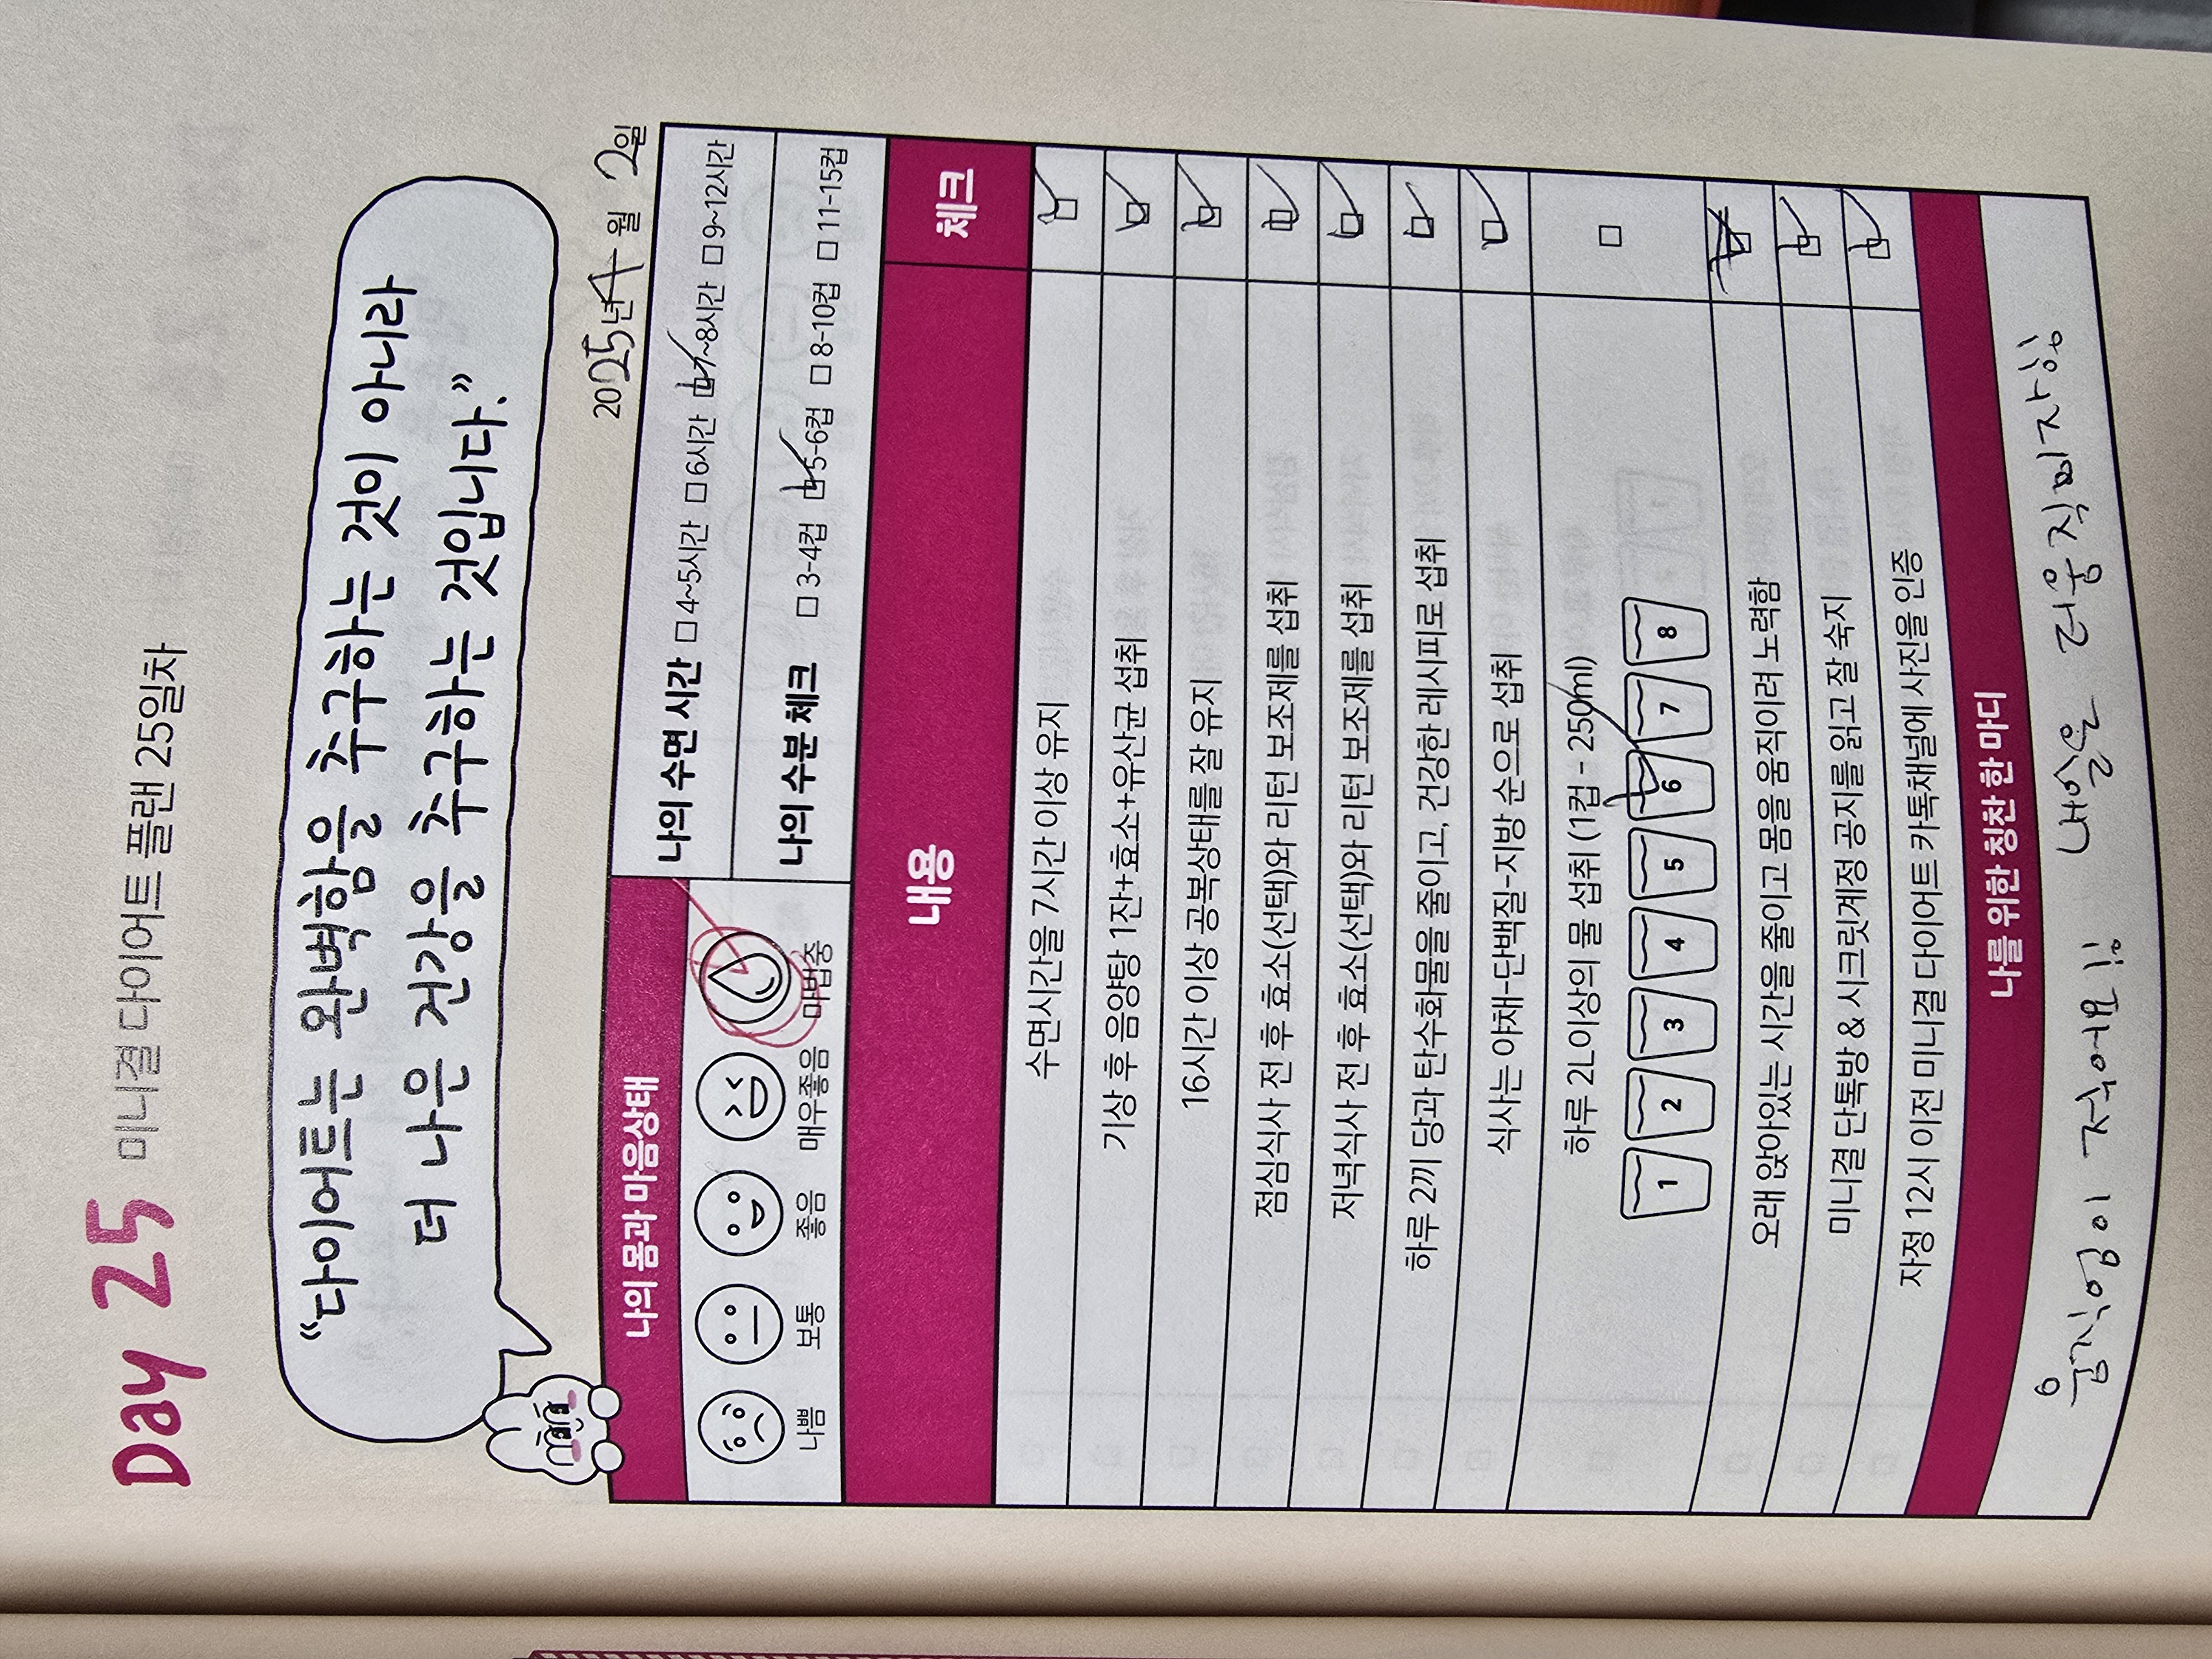 Day 25 미니결 다이어트 플랜 25일차
“다이어트는 완벽함을 추구하는 것이 아니라
더 나은 건강을 추구하는 것입니다.”
2025년 4월 2일
나의 몸과 마음상태
나쁨 보통 좋음 매우좋음 마법중
나의 수면 시간 □ 4~5시간 □ 6시간 □ 7~8시간 □ 9~12시간
나의 수분 체크 □ 3-4컵 □ 5-6컵 □ 8-10컵 □ 11-15컵
내용 체크
수면시간을 7시간 이상 유지
기상 후 음양탕 1잔+효소+유산균 섭취
16시간 이상 공복상태를 잘 유지
점심식사 전 후 효소(선택)와 리턴 보조제를 섭취
저녁식사 전 후 효소(선택)와 리턴 보조제를 섭취
하루 2끼 당과 탄수화물을 줄이고, 건강한 레시피로 섭취
식사는 야채-단백질-지방 순으로 섭취
하루 2L이상의 물 섭취 (1컵 - 250ml)
1 2 3 4 5 6 7 8
오래 앉아있는 시간을 줄이고 몸을 움직이려 노력함
미니결 단톡방 & 시크릿계정 공지를 읽고 잘 숙지
자정 12시 이전 미니결 다이어트 카톡채널에 사진을 인증
나를 위한 칭찬 한 마디
움직임이 적어요!! 내일은 더움직여자